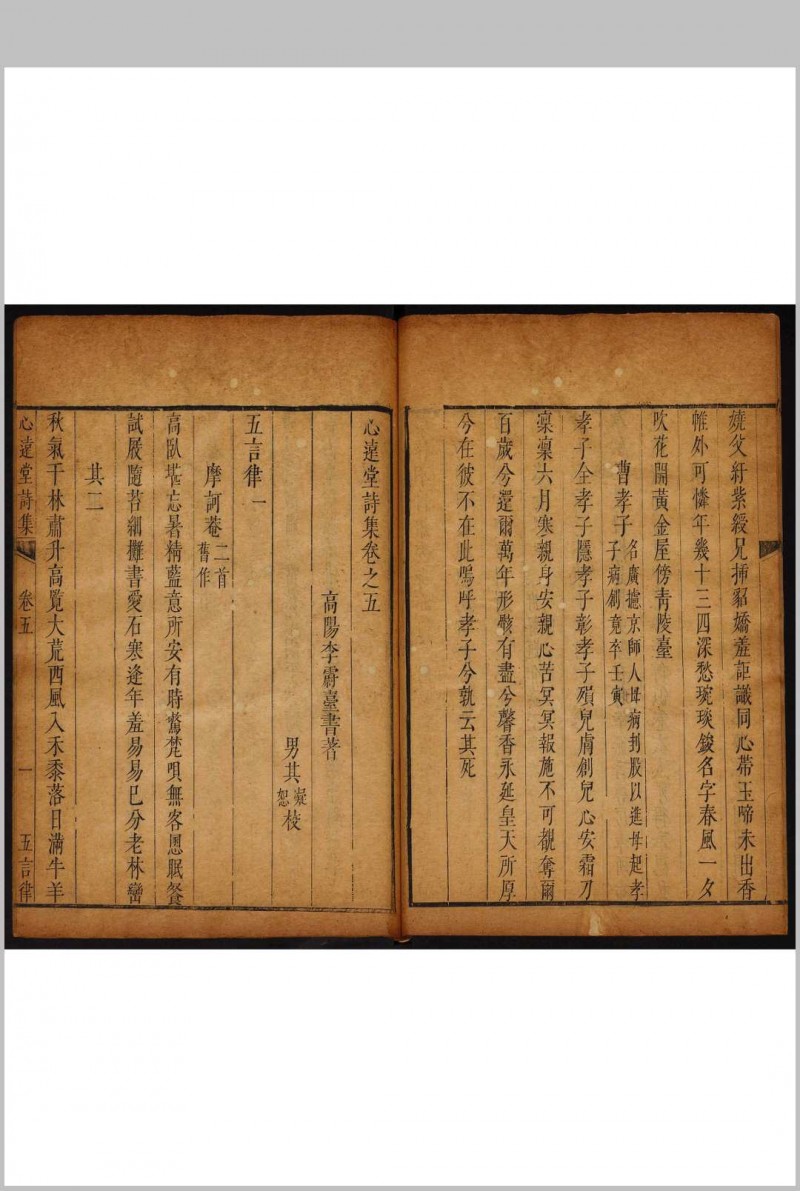 嬈父紆紫綬兄揷貂嬌羞詎識同心帶玉啼未出香
帷外可憐年幾十三四深愁琬琰鐫名字春風一夕
吹花開黃金屋傍靑陵臺
曹孝子
名廣摅京師人母病刲股以進母起孝
子病創竟卒壬寅
孝子全孝子隱孝子彰孝子殞兒膚創兒心安霜刀
凜凜六月寒親身安親心苦冥冥報施不可覩奪爾
百歲兮還爾萬年形骸有盡兮馨香永延皇天所厚
兮在彼不在此嗚呼孝子兮孰云其死
心遠堂詩集卷之五
高陽李霨臺書著
男其凝恕校
五言律一
摩訶菴二首舊作
高臥堪忘暑精藍意所安有時驚梵唄無客恩眠餐
試展隨苔綱攤書愛石寒逢年羞易易已分老林巒
其二
秋氣干林肅升高覽大荒西風入禾黍落日滿牛羊
心遠堂詩集 卷五 一 五言律